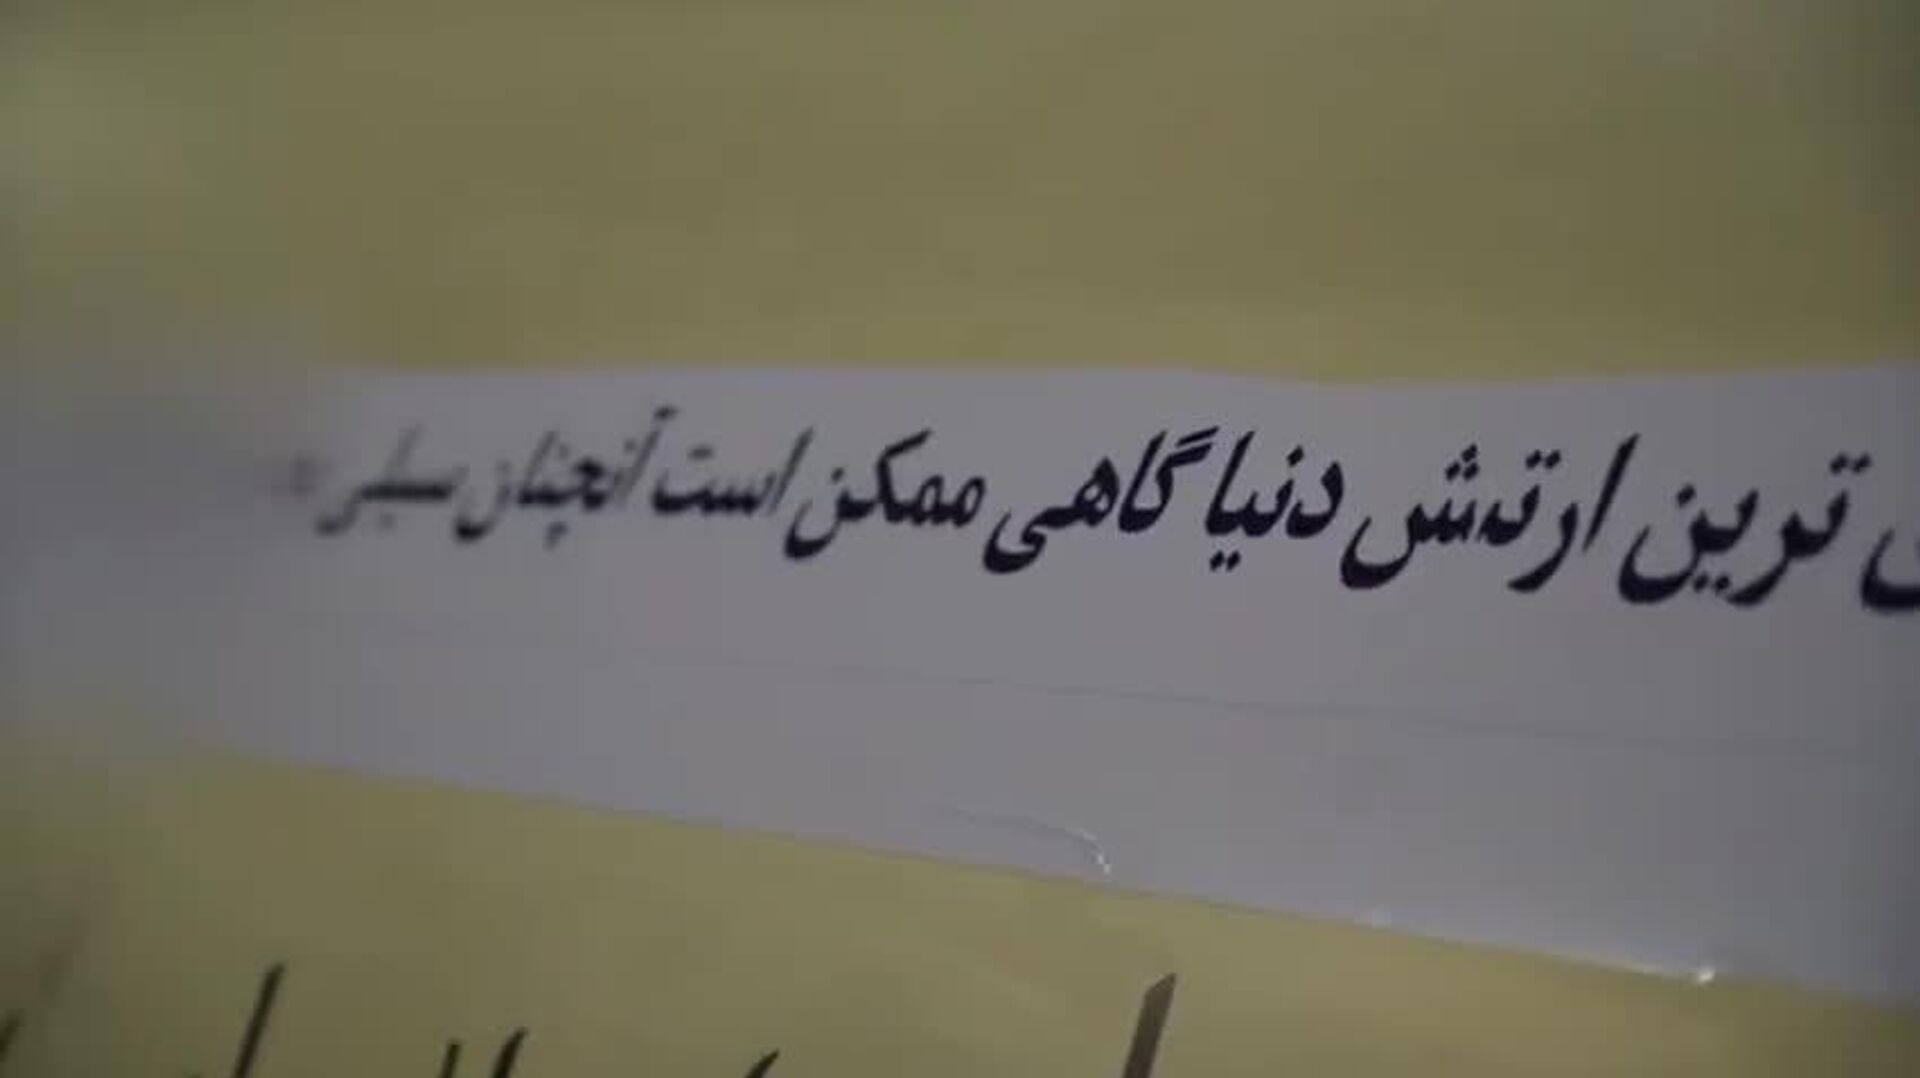 ترین ارتش دنیا گاهی ممکن است آنچنان سیلی